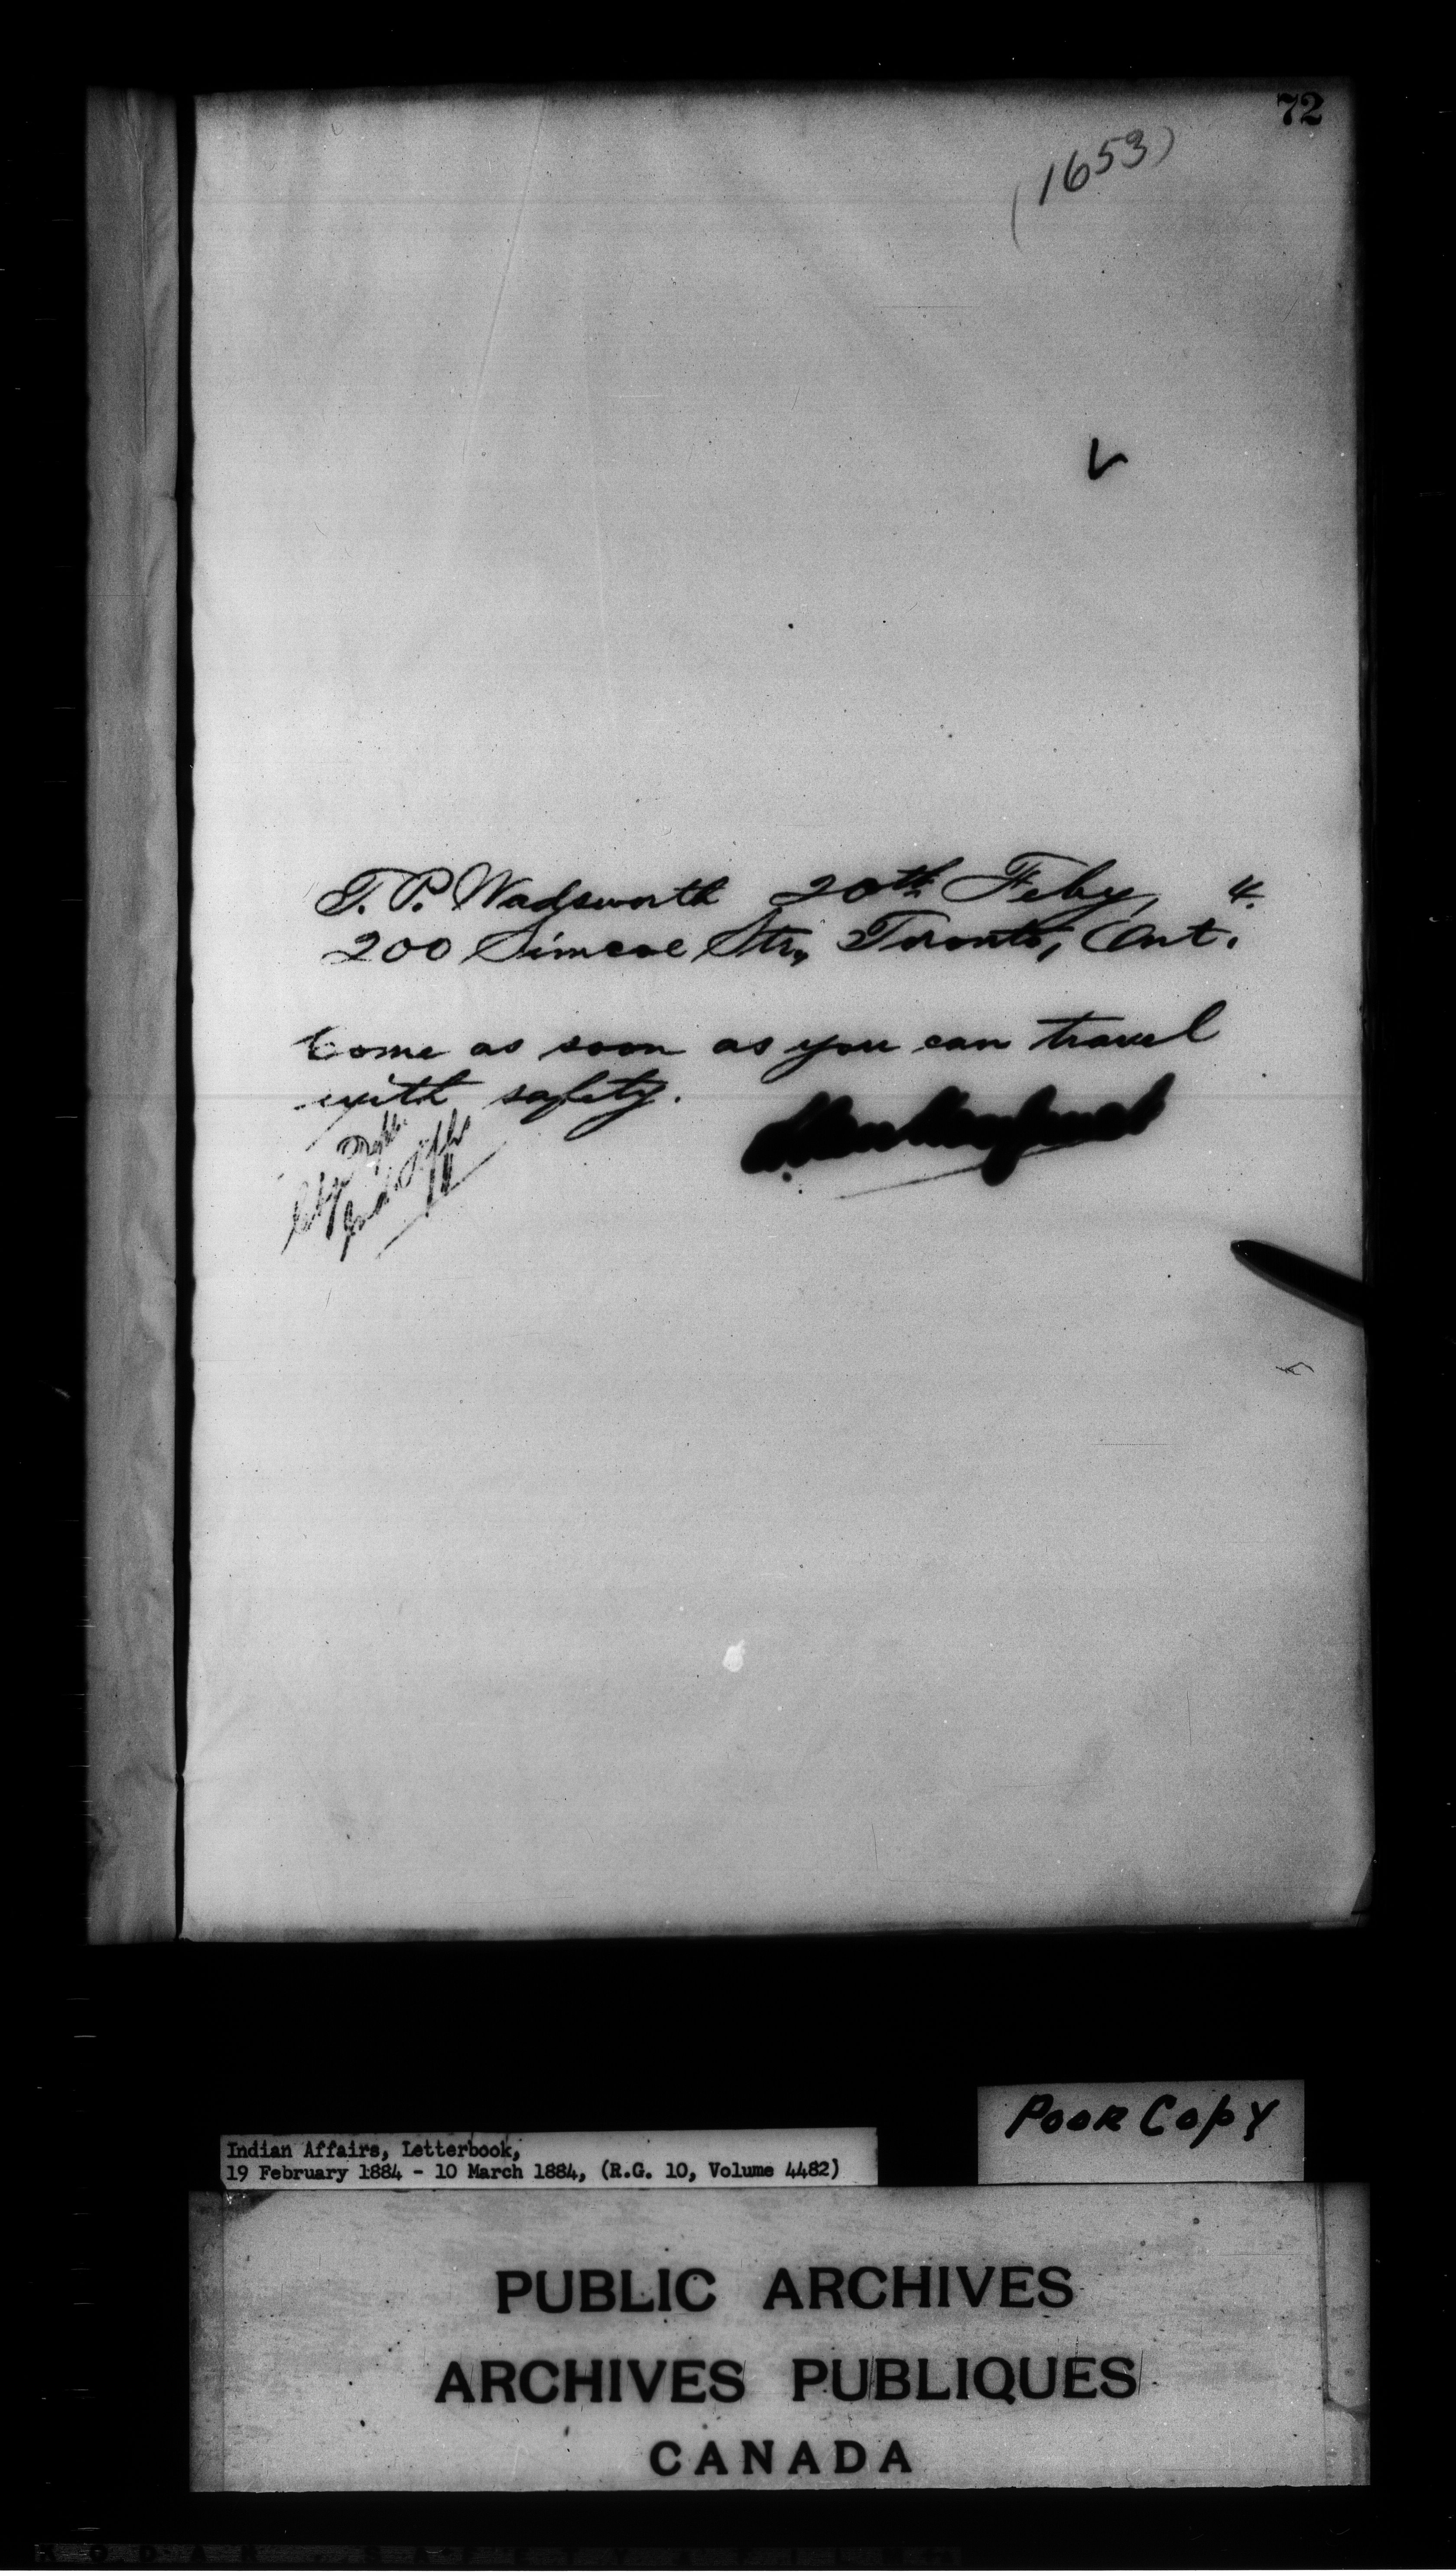 72
(1653)
T. P. Wadsworth 20th Feby, 4.
200 Simcoe Str, Toronto, Ont.
Come as soon as you can travel
with safety.
Poor Copy
Indian Affairs, Letterbook,
19 February 1884 - 10 March 1884, (R.G. 10, Volume 4482)
PUBLIC ARCHIVES
ARCHIVES PUBLIQUES
CANADA